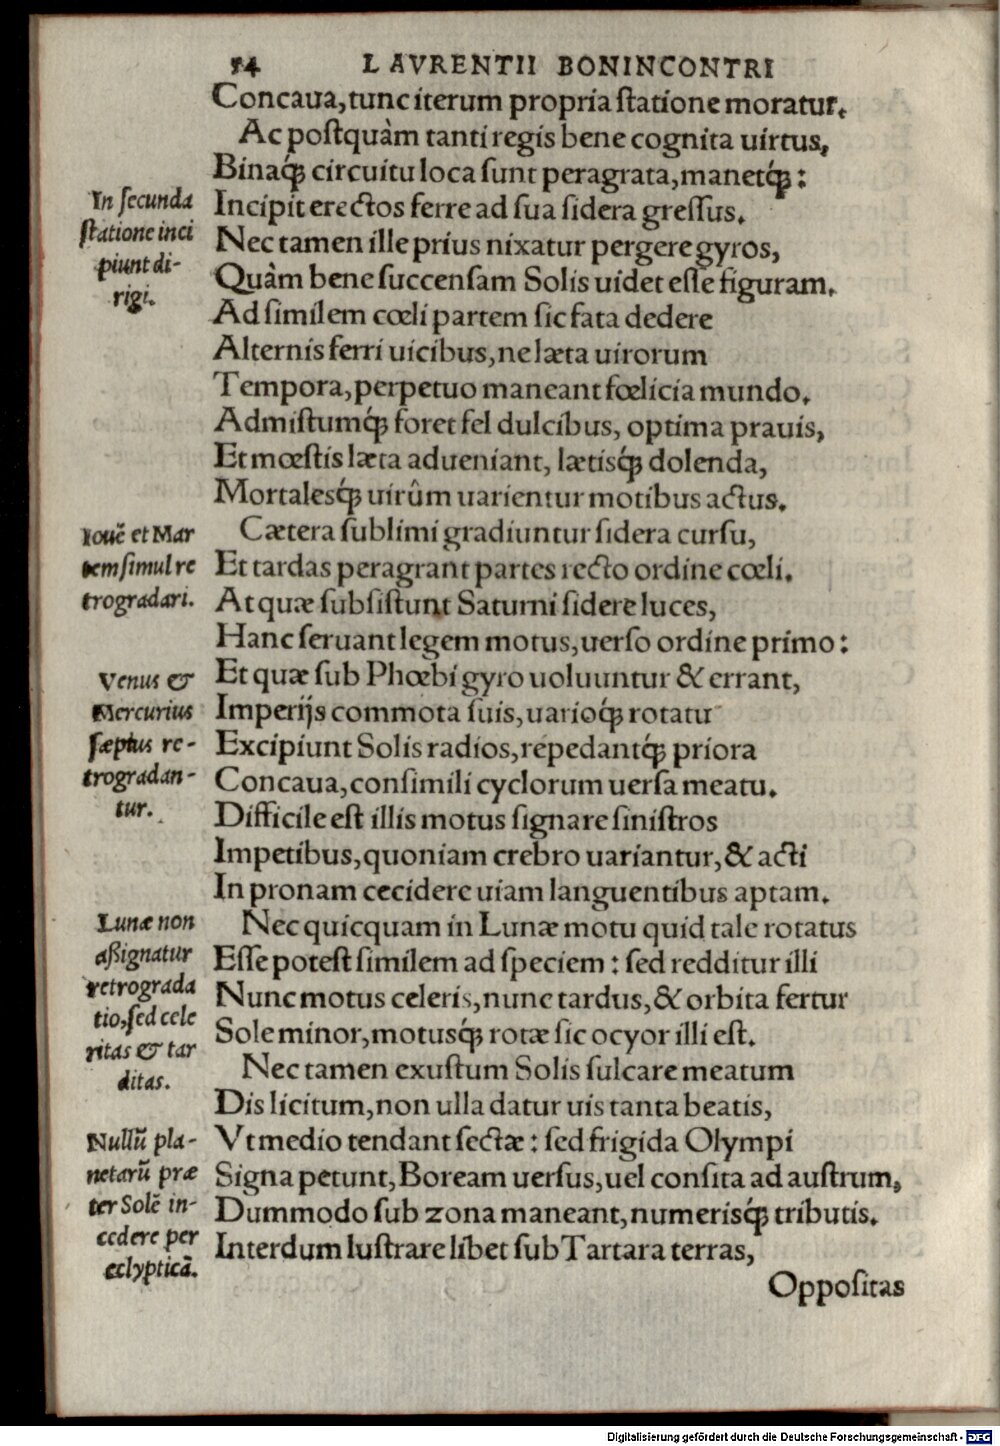 54 LAVRENTII BONINCONTRI
Concaua, tunc iterum propria ſtatione moratur.
Ac poſtquàm tanti regis bene cognita uirtus,
Binaq́; circuitu loca ſunt peragrata, manetq́;:
In ſecunda
ſtatione inci
piunt di-
rigi.
Incipit erectos ferre ad ſua ſidera greſſus.
Nec tamen ille prius nixatur pergere gyros,
Quàm bene ſuccenſam Solis uidet eſſe figuram.
Ad ſimilem cœli partem ſic fata dedere
Alternis ferri uicibus, ne læta uirorum
Tempora, perpetuo maneant fœlicia mundo.
Admiſtumq́; foret fel dulcibus, optima prauis,
Et mœſtis læta adueniant, lætisq́; dolenda,
Mortalesq́; uirûm uarientur motibus actus.
Iouẽ et Mar
tem ſimul re
trogradari.
Cætera ſublimi gradiuntur ſidera curſu,
Et tardas peragrant partes recto ordine cœli.
At quæ ſubſiſtunt Saturni ſidere luces,
Hanc ſeruant legem motus, uerſo ordine primo:
Venus &
Mercurius
ſæpius re-
trogradan-
tur.
Et quæ ſub Phœbi gyro uoluuntur & errant,
Imperijs commota ſuis, uarioq́; rotatu
Excipiunt Solis radios, repedantq́; priora
Concaua, conſimili cyclorum uerſa meatu.
Difficile eſt illis motus ſignare ſiniſtros
Impetibus, quoniam crebro uariantur, & acti
In pronam cecidere uiam languentibus aptam.
Lunæ non
aßignatur
retrograda
tio, ſed cele
ritas & tar
ditas.
Nec quicquam in Lunæ motu quid tale rotatus
Eſſe poteſt ſimilem ad ſpeciem: ſed redditur illi
Nunc motus celeris, nunc tardus, & orbita fertur
Sole minor, motusq́; rotæ ſic ocyor illi eſt.
Nec tamen exuſtum Solis ſulcare meatum
Dis licitum, non ulla datur uis tanta beatis,
Nullũ pla-
netarũ præ
ter Solẽ in-
cedere per
eclypticã.
Vt medio tendant ſectæ: ſed frigida Olympi
Signa petunt, Boream uerſus, uel conſita ad auſtrum,
Dummodo ſub zona maneant, numerisq́; tributis.
Interdum luſtrare libet ſub Tartara terras,
Oppoſitas
Digitalisierung gefördert durch die Deutsche Forschungsgemeinschaft - DFG